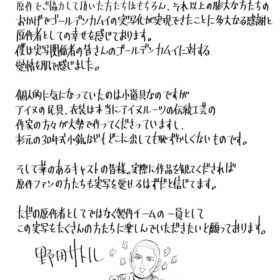 原作でご協力して頂いた方たちはもちろん、それ以上の膨大な方たちの
おかげでゴールデンカムイの実写化が実現できたことに多大なる感謝と
原作者としての幸せを感じております。
僕は実写関係者の皆さんのゴールデンカムイに対する
愛情を肌で感じました。
個人的に気になっていたのは小道具なのですが
アイヌの民具、衣装は本当にアイヌルーツの伝統工芸の
作家の方々が大勢で作ってくださっていますし、
杉元の30年式小銃などどこに出しても恥ずかしくないものです。
そして華のあるキャストの皆様。実際に作品を観てくだされば
原作ファンの方たちも実写を愛せるはずだと信じてます。
ただの原作者としてではなく製作チームの一員として
この実写をたくさんの方たちに楽しんでいただきたいと願っております。
野田サトル